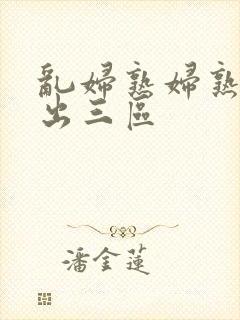 亂婦熟婦熟
出三區
潘金蓮